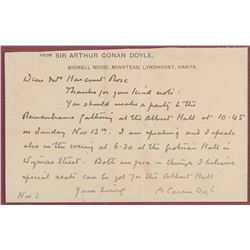 FROM SIR ARTHUR CONAN DOYLE,
BIGNELL WOOD, MINSTEAD, LYNDHURST, HANTS.
Dear Mrs Harcourt Rose
Thanks for your kind note.
You should make a party to this
Remembrance gathering at the Albert Hall at 10.45
on Sunday Nov 13th. I am speaking and I speak
also in the evening at 6.30 at the Grotrian Hall in
Wigmore Street. Both are free – though I believe
special seats can be got for the Albert Hall.
Yours sincerely
Nov 3 A Conan Doyle